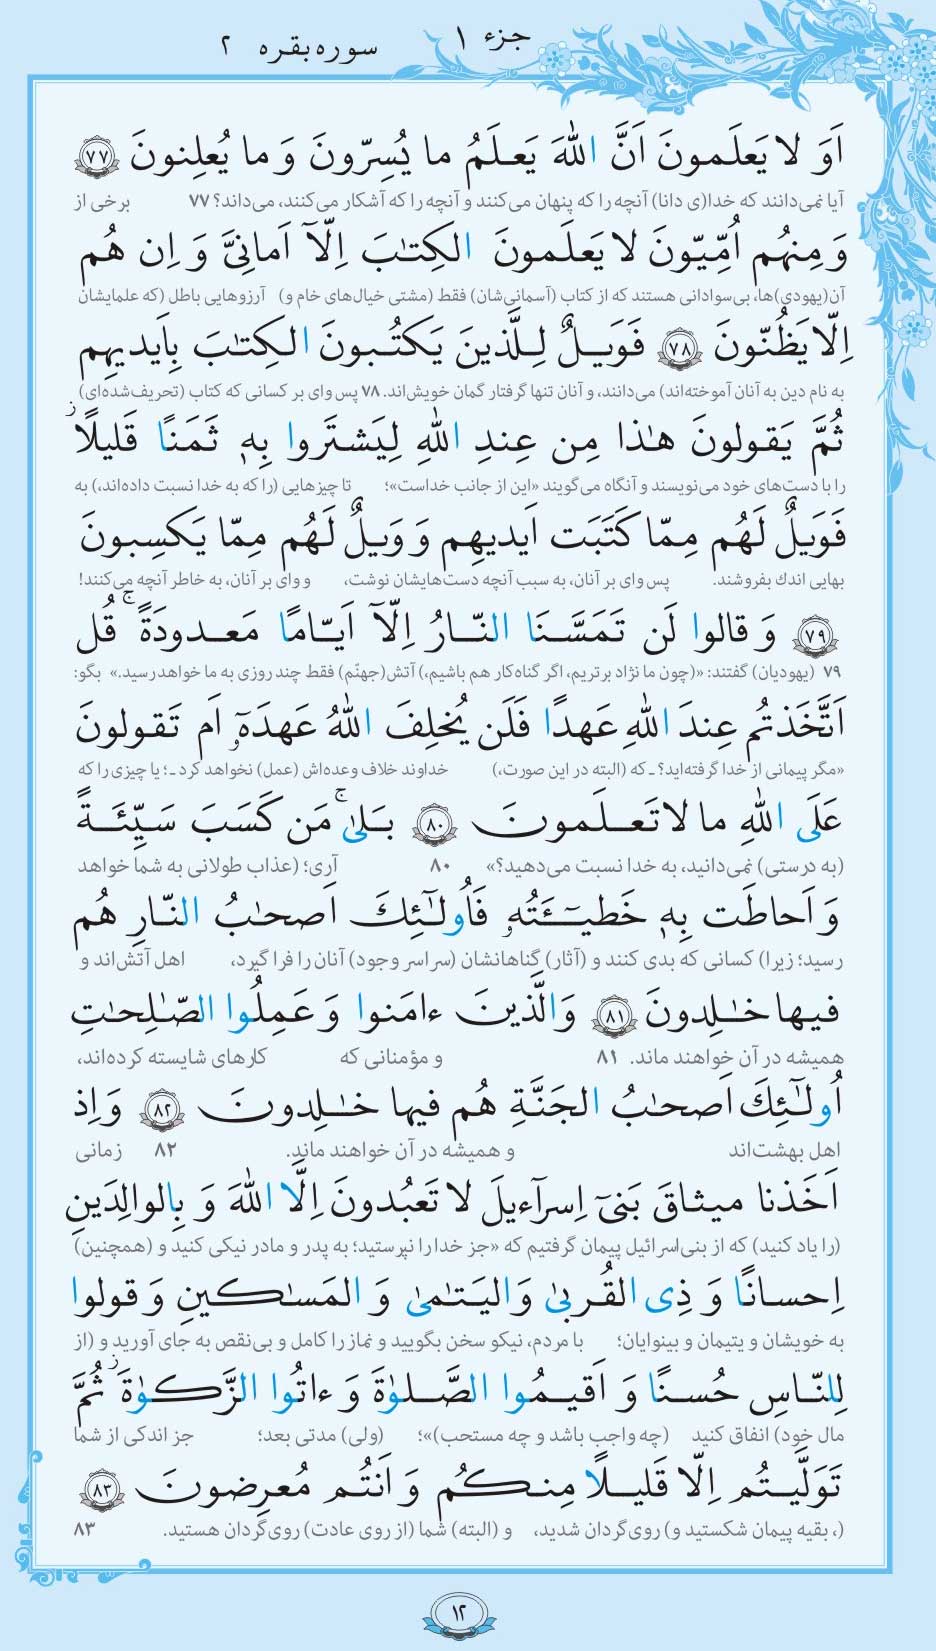 جزء ۱
سوره بقره ۲
اَوَ لا يَعلَمونَ اَنَّ اللّٰهَ يَعلَمُ ما يُسِرّونَ وَ ما يُعلِنونَ ۷۷
آیا نمی‌دانند که خدا(ی دانا) آنچه را که پنهان می‌کنند و آنچه را که آشکار می‌کنند، می‌داند؟ ۷۷ برخی از
وَ مِنهُم اُمِّيّونَ لا يَعلَمونَ الكِتٰبَ اِلّآ اَمانِىَّ وَ اِن هُم
آن(یهودی)ها، بی‌سوادانی هستند که از کتاب (آسمانی‌شان) فقط (مشتی خیال‌های خام و) آرزوهایی باطل (که علمایشان
اِلّا يَظُنّونَ ۷۸ فَوَيلٌ لِلَّذينَ يَكتُبونَ الكِتٰبَ بِاَيديهِم
به نام دین به آنان آموخته‌اند) می‌دانند، و آنان تنها گرفتار گمان خویش‌اند. ۷۸ پس وای بر کسانی که کتاب (تحریف‌شده‌ای)
ثُمَّ يَقولونَ هٰذا مِن عِندِ اللّٰهِ لِيَشتَروا بِهٖ ثَمَنًا قَليلًا ز
را با دست‌های خود می‌نویسند و آنگاه می‌گویند «این از جانب خداست»؛ تا چیزهایی (را که به خدا نسبت داده‌اند،) به
فَوَيلٌ لَهُم مِمّا كَتَبَت اَيديهِم وَ وَيلٌ لَهُم مِمّا يَكسِبونَ
بهایی اندك بفروشند. پس وای بر آنان، به سبب آنچه دست‌هایشان نوشت، و وای بر آنان، به خاطر آنچه می‌کنند!
۷۹ وَ قالوا لَن تَمَسَّنَا النّارُ اِلّآ اَيّامًا مَعدودَةً ۚ قُل
۷۹ (یهودیان) گفتند: «(چون ما نژاد برتریم، اگر گناه‌کار هم باشیم،) آتش(جهنّم) فقط چند روزی به ما خواهد رسید.» بگو:
اَتَّخَذتُم عِندَ اللّٰهِ عَهدًا فَلَن يُخلِفَ اللّٰهُ عَهدَهٗٓ اَم تَقولونَ
«مگر پیمانی از خدا گرفته‌اید؟ ـ که (البته در این صورت،) خداوند خلاف وعده‌اش (عمل) نخواهد کرد ـ؛ یا چیزی را که
عَلَى اللّٰهِ ما لا تَعلَمونَ ۸۰ بَلىٰ ۚ مَن كَسَبَ سَيِّئَةً
(به درستی) نمی‌دانید، به خدا نسبت می‌دهید؟» ۸۰ آری؛ (عذاب طولانی به شما خواهد
وَ اَحاطَت بِهٖ خَطيٓـَٔتُهٗ فَاُولٰٓئِكَ اَصحٰبُ النّارِ هُم
رسید؛ زیرا) کسانی که بدی کنند و (آثار) گناهانشان (سراسر وجود) آنان را فرا گیرد، اهل آتش‌اند و
فيها خٰلِدونَ ۸۱ وَ الَّذينَ ءامَنوا وَ عَمِلُوا الصّٰلِحٰتِ
همیشه در آن خواهند ماند. ۸۱ و مؤمنانی که کارهای شایسته کرده‌اند،
اُولٰٓئِكَ اَصحٰبُ الجَنَّةِ هُم فيها خٰلِدونَ ۸۲ وَ اِذ
اهل بهشت‌اند و همیشه در آن خواهند ماند. ۸۲ زمانی
اَخَذنا ميثاقَ بَنىٓ اِسرآءيلَ لا تَعبُدونَ اِلَّا اللّٰهَ وَ بِالوالِدَينِ
(را یاد کنید) که از بنی‌اسرائیل پیمان گرفتیم که «جز خدا را نپرستید؛ به پدر و مادر نیکی کنید و (همچنین)
اِحسانًا وَ ذِى القُربىٰ وَ اليَتٰمىٰ وَ المَسٰكينِ وَ قولوا
به خویشان و یتیمان و بینوایان؛ با مردم، نیکو سخن بگویید و نماز را کامل و بی‌نقص به جای آورید و (از
لِلنّاسِ حُسنًا وَ اَقيمُوا الصَّلوٰةَ وَ ءاتُوا الزَّكوٰةَ ز ثُمَّ
مال خود) انفاق کنید (چه واجب باشد و چه مستحب)»؛ (ولی) مدتی بعد؛ جز اندکی از شما
تَوَلَّيتُم اِلّا قَليلًا مِنكُم وَ اَنتُم مُعرِضونَ ۸۳
(، بقیه پیمان شکستید و) روی‌گردان شدید، و (البته) شما (از روی عادت) روی‌گردان هستید. ۸۳
۱۲